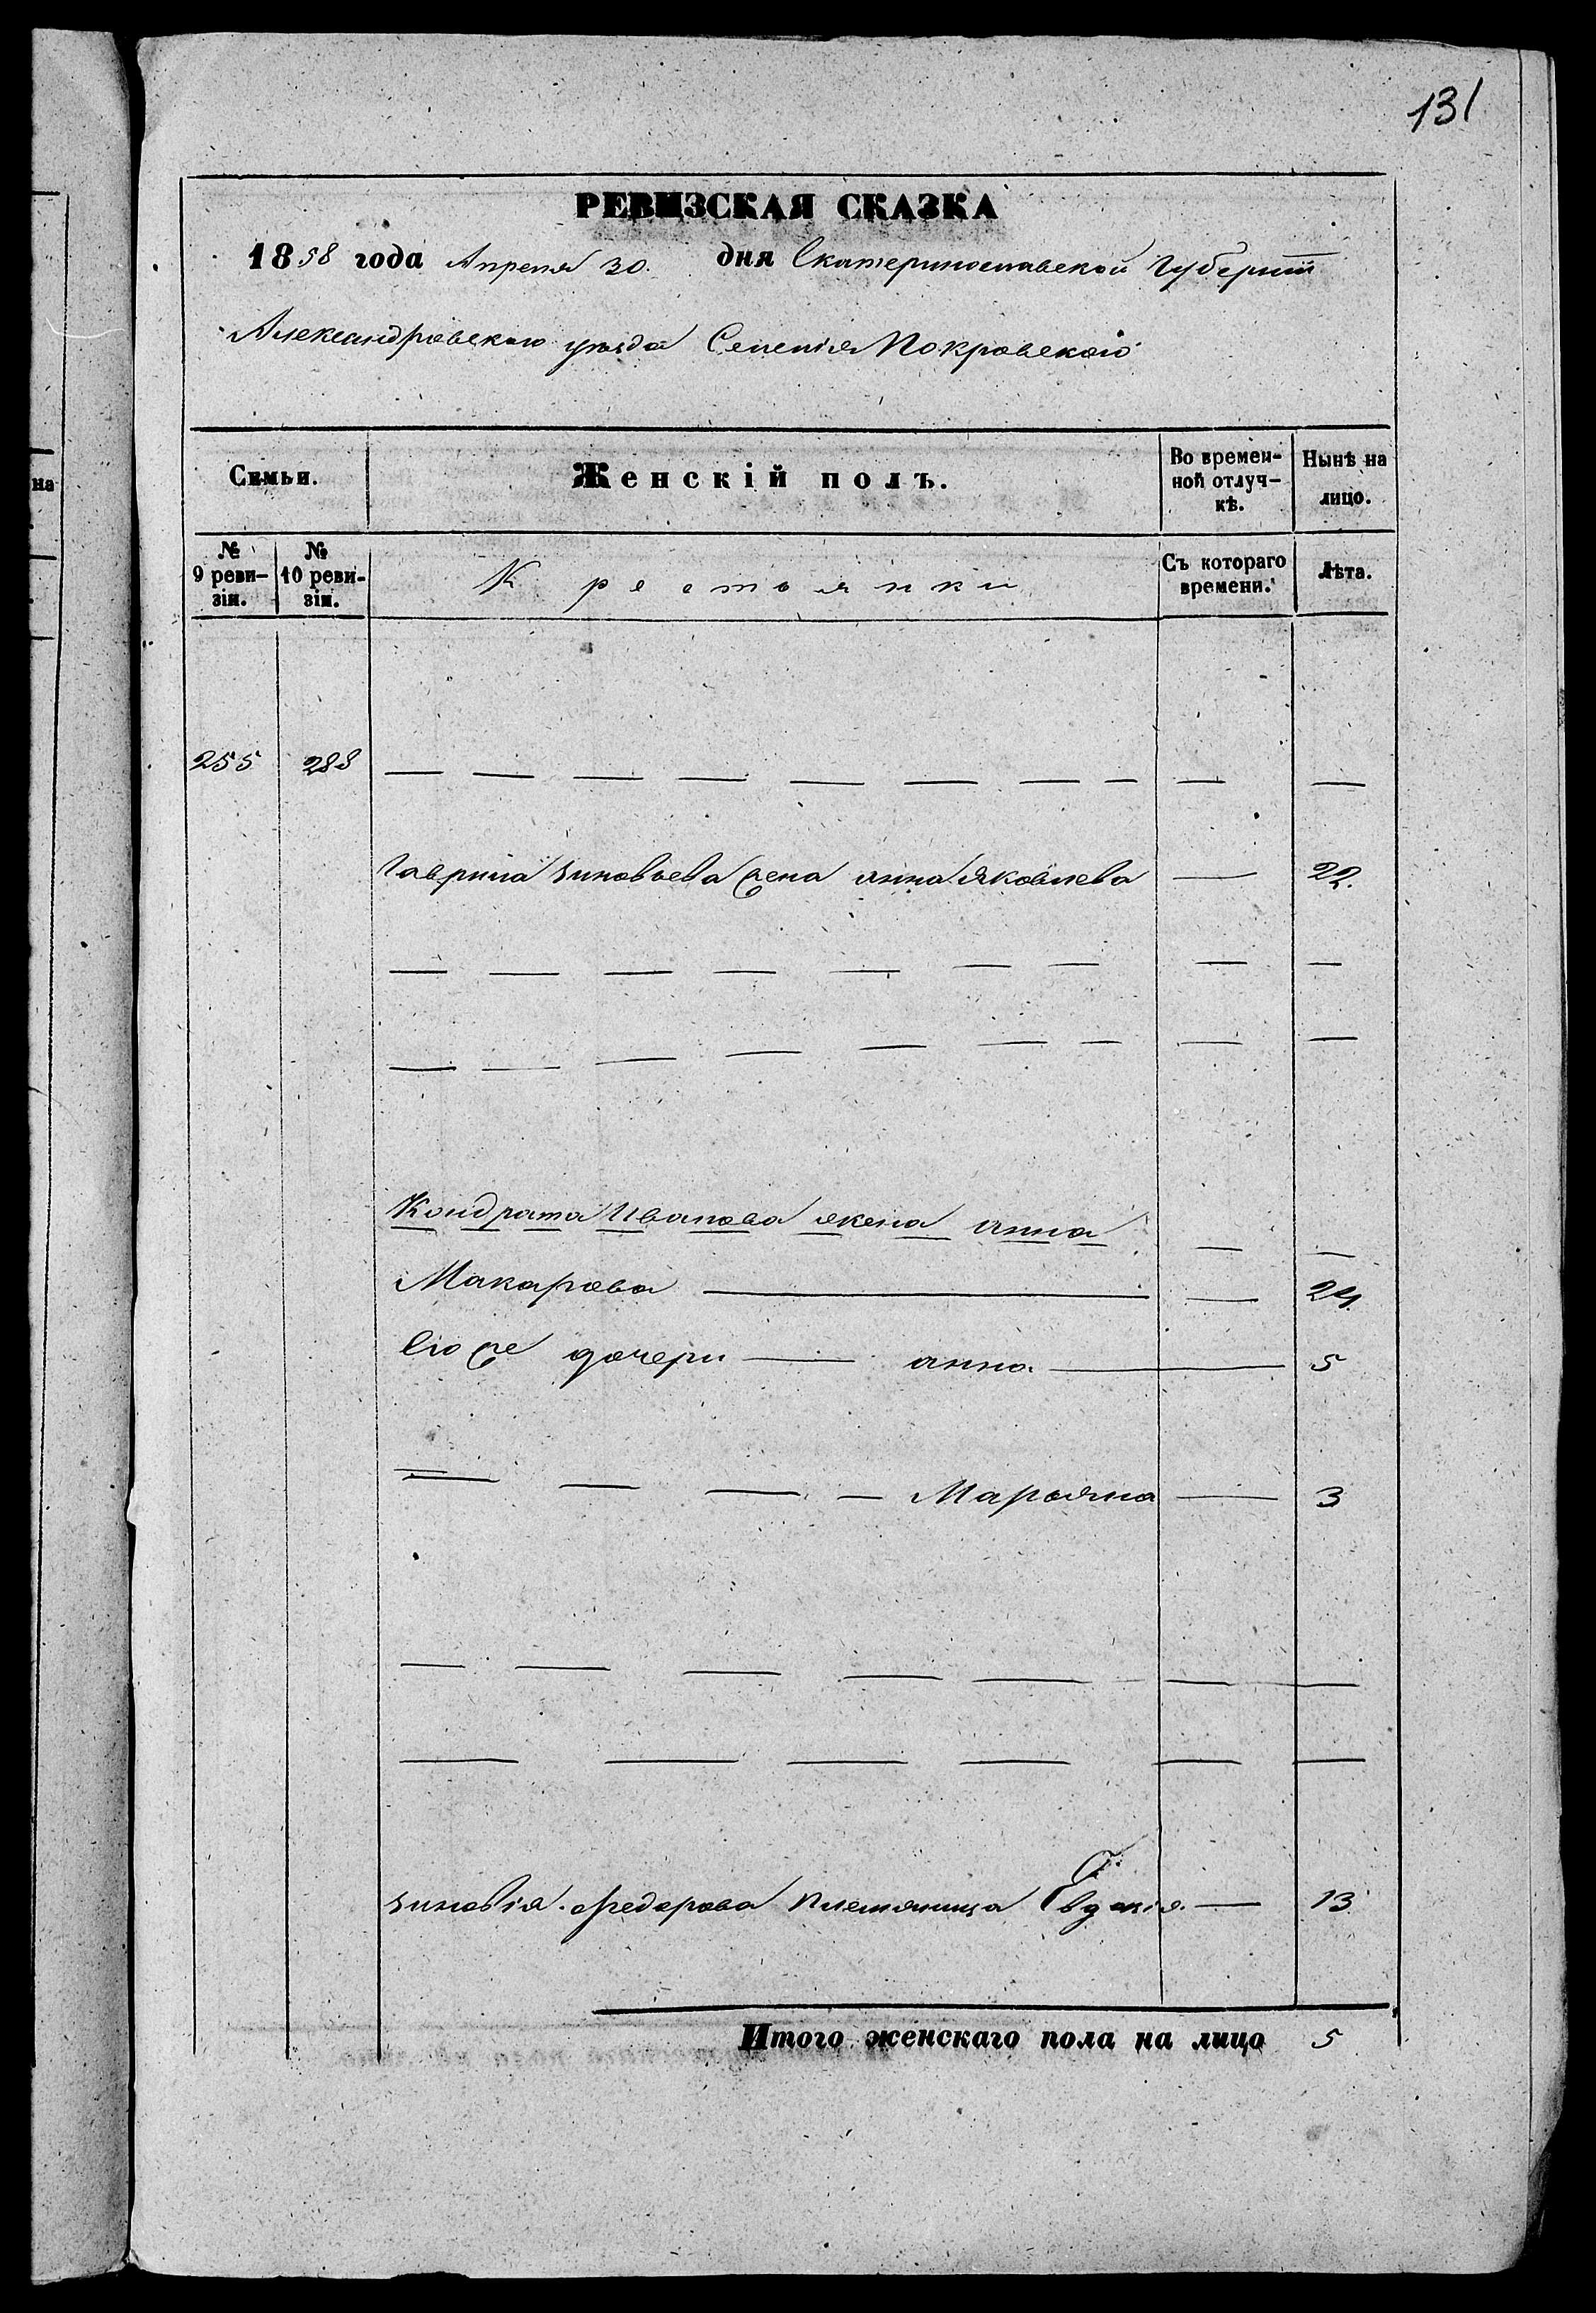 131
РЕВИЗСКАЯ СКАЗКА
1858 года Апреля 30. дня Екатеринославской Губерніи
Александровскаго уезда Селенія Покровскаго
Семьи. Женскій полъ. Во времен- Нынѣ на
на ной отлуч- лицо.
кѣ.
№ № Крестьянки Съ котораго Лѣта.
9 реви- 10 реви- времени.
зіи. зіи.
255 288 — — — — — — — — — —
Гаврила Зиновьева жена анна Яковлева — 22.
— — — — — — — — —
— — — — — — — — —
Кондрата Иванова жена анна — —
Макарова — — 24
Его же дочери — анна — 5
— — — — Марьяна — 3
— — — — — — —
— — — — — —
Зиновія Федорова племянница Евдокія — 13
Итого женскаго пола на лицо 5